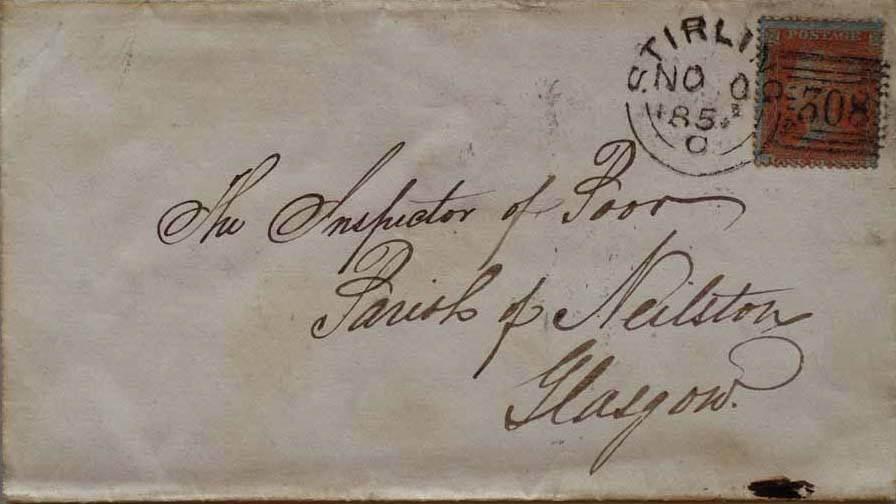 STIRLIN
POSTAGE
NO
185
308
C
The Inspector of Poor
Parish of Neilston
Glasgow.